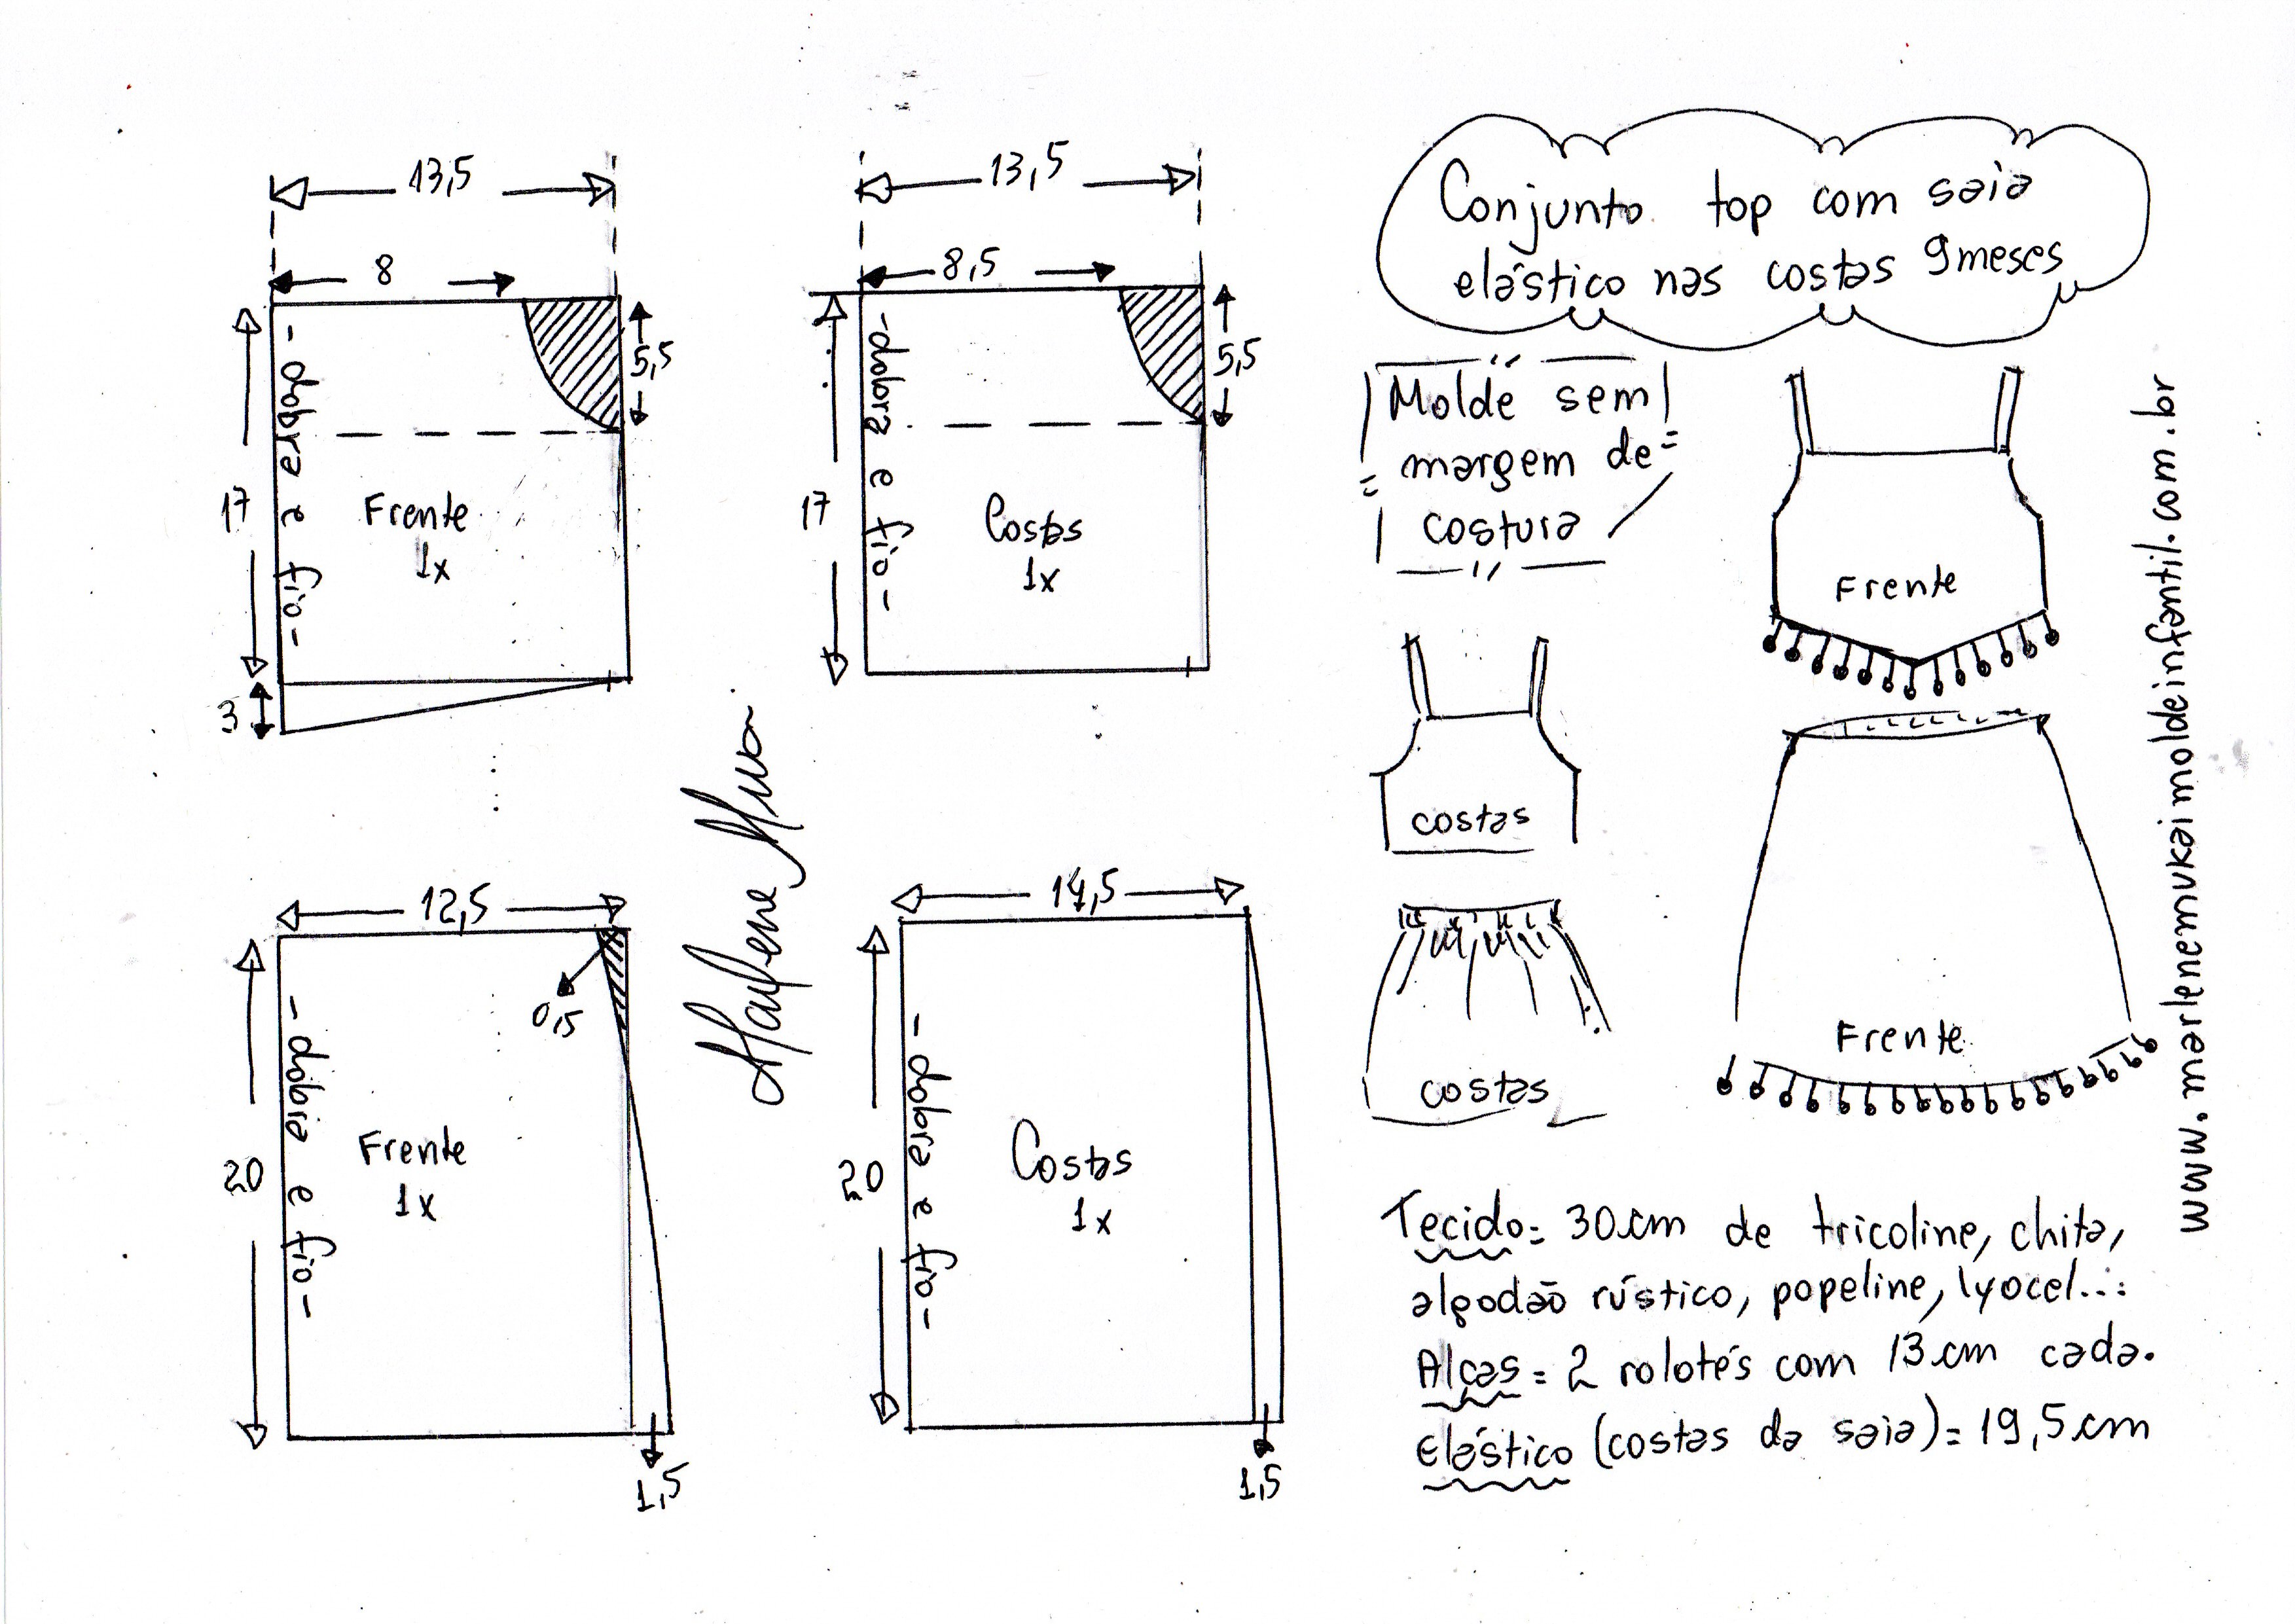 13,5
8
5,5
17
- dobra e fio -
Frente
1x
3
13,5
8,5
5,5
17
- dobra e fio -
Costas
1x
12,5
0,5
20
- dobra e fio -
Frente
1x
1,5
14,5
20
- dobra e fio -
Costas
1x
1,5
Conjunto top com saia
elástico nas costas 9meses
Molde sem
margem de
costura
Frente
costas
Frente
costas
www.marlenemukaimoldeinfantil.com.br
Tecido= 30cm de tricoline, chita,
algodão rústico, popeline, lyocel...
Alças = 2 rolotés com 13cm cada.
Elástico (costas da saia)= 19,5cm